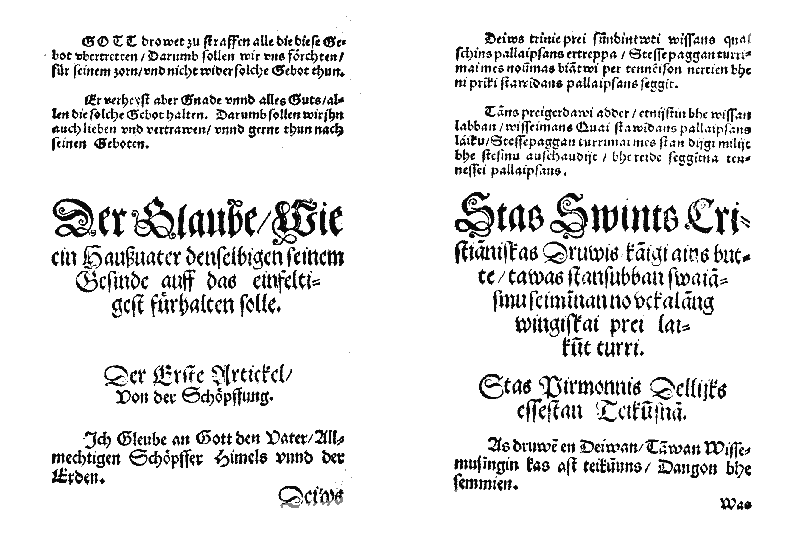 GOTT drowet zu straffen alle die diese Ge-
bot vbertretten / Darumb sollen wir vns förchten /
für seinem zorn / vnd nicht wider solche Gebot thun.
Er verheyst aber Gnade vnnd alles Guts / al-
len die solche Gebot halten. Darumb sollen wir jhn
auch lieben vnd vertrawen / vnnd gerne thun nach
seinen Geboten.
Der Glaube / Wie
ein Haußuater denselbigen seinem
Gesinde auff das einfelti-
gest fürhalten solle.
Der Erste Artickel /
Von der Schöpffung.
Ich Gleube an Gott den Vater / All-
mechtigen Schöpffer Himels vnnd der
Erden.
Deiws
Deiws trinie prei sündintwei wissans quai
schins pallaipsans ertreppa / Stesse paggan turri-
mai mes noūmas biātwi per tennēison nertien bhe
ni priki stawidans pallaipsans seggīt.
Tāns preigerdawi adder / etnijstin bhe wissan
labban / wisseimans Quai stawidans pallaipsans
lāiku / Stessepaggan turrimai mes stan dijgi milijt
bhe stesmu auschaudije / bhe reide seggitna ten-
nessei pallaipsans.
Stas Swints Cri-
stiāniskas Druwis kāigi ains but-
te / tawas stansubban swaiā-
smu seimīnan no vckalāng
wingiskai prei lai-
kūt turri.
Stas Pirmonnis Dellijks
essestan Teikūsnā.
As druwē en Deiwan / Tāwan Wisse-
musīngin kas ast teikūuns / Dangon bhe
semmien.
Was